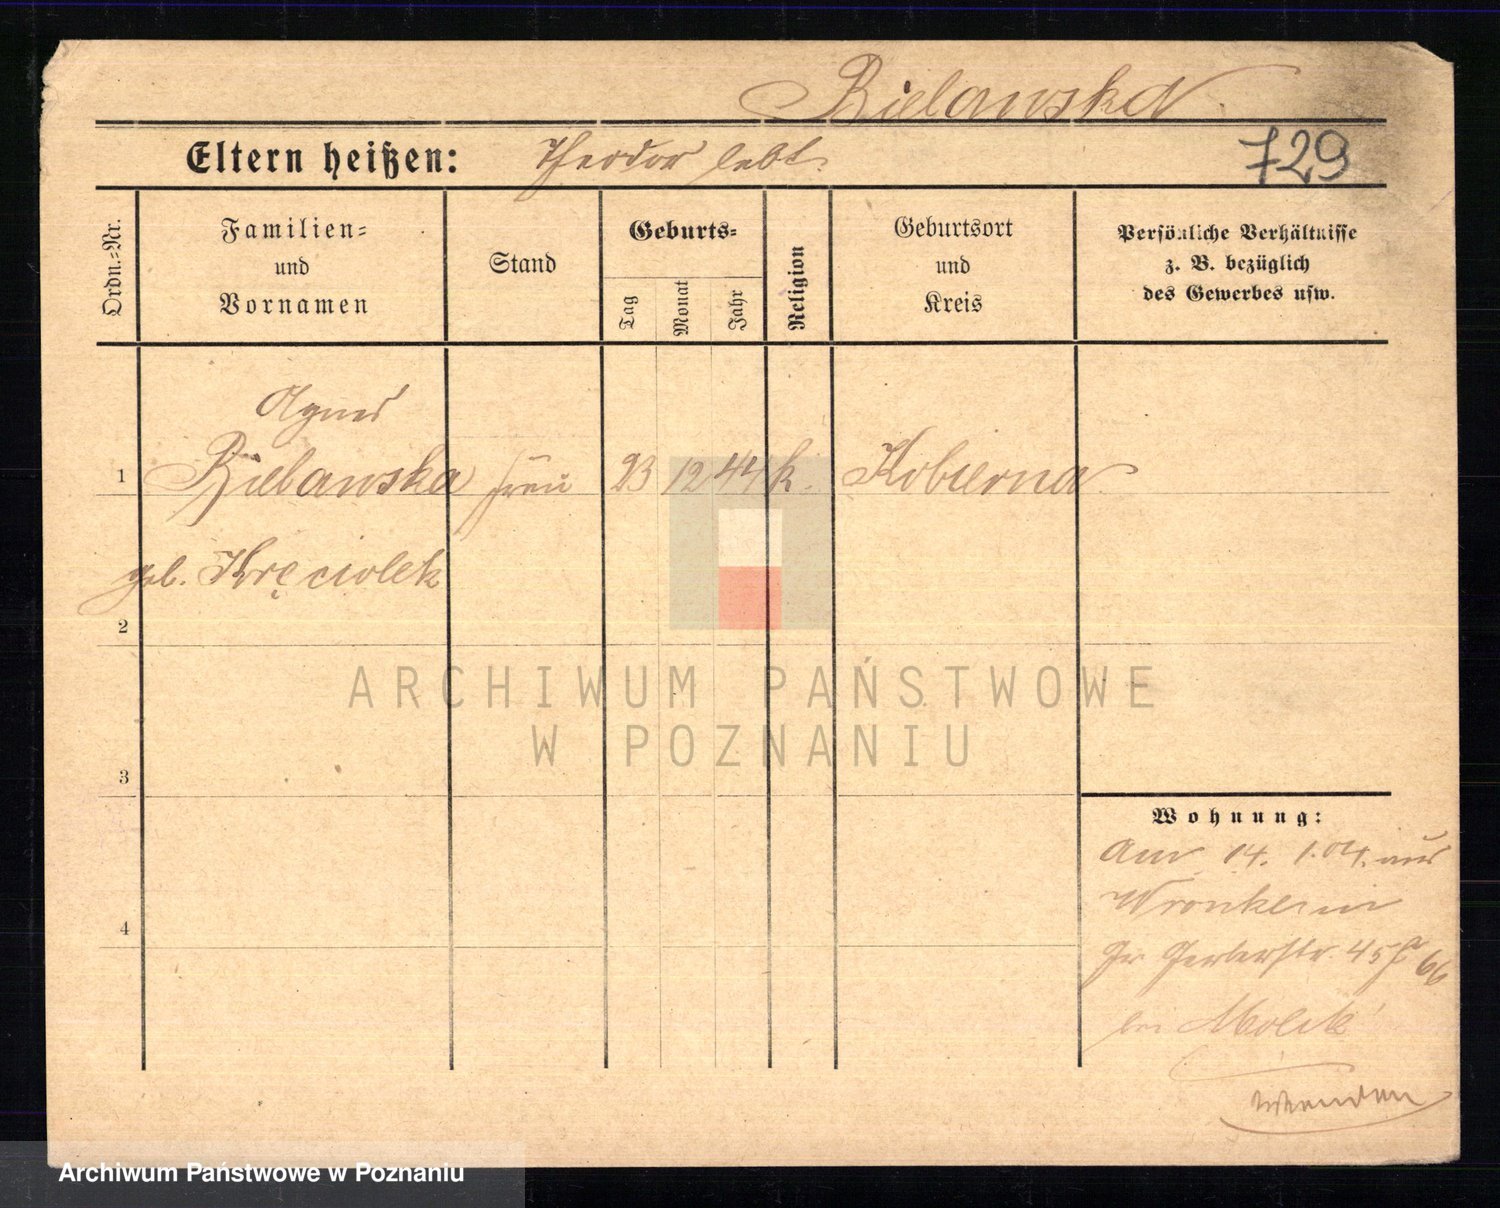 Bielawska
Eltern heißen: Theodor lebt.
729
Ordn.-Nr.
Familien-
und
Vornamen
Stand
Geburts-
Tag
Monat
Jahr
Religion
Geburtsort
und
Kreis
Persönliche Verhältnisse
z. B. bezüglich
des Gewerbes usw.
Agnes
1 Bielawska Frau 23 12 44 k. Kobierna
geb. Kręciolek
2
ARCHIWUM PAŃSTWOWE
W POZNANIU
3
Wohnung:
Am 14. 1.04. aus
Wronke in
4
Gr Gerberstr. 45
66
bei
Wenden
Archiwum Państwowe w Poznaniu